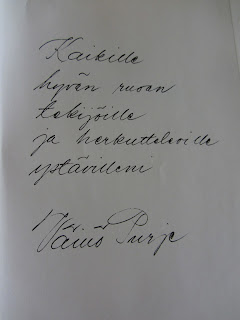 Kaikille
hyvän ruoan
tekijöille
ja herkutteleville
ystävilleni
Väinö Purje